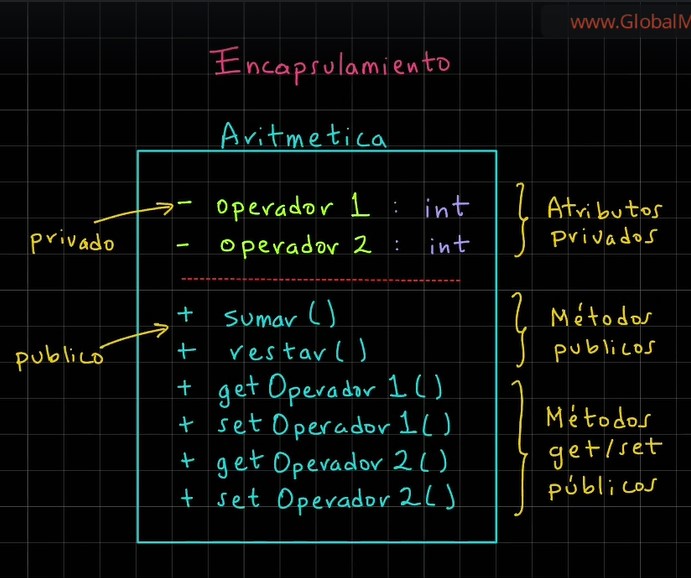 www.GlobalM
Encapsulamiento
Aritmetica
- operador 1 : int
- operador 2 : int
Atributos
privados
privado
+ sumar ()
+ restar ()
Métodos
publicos
publico
+ get Operador 1 ()
+ set Operador 1 ()
+ get Operador 2 ()
+ set Operador 2 ()
Métodos
get/set
públicos